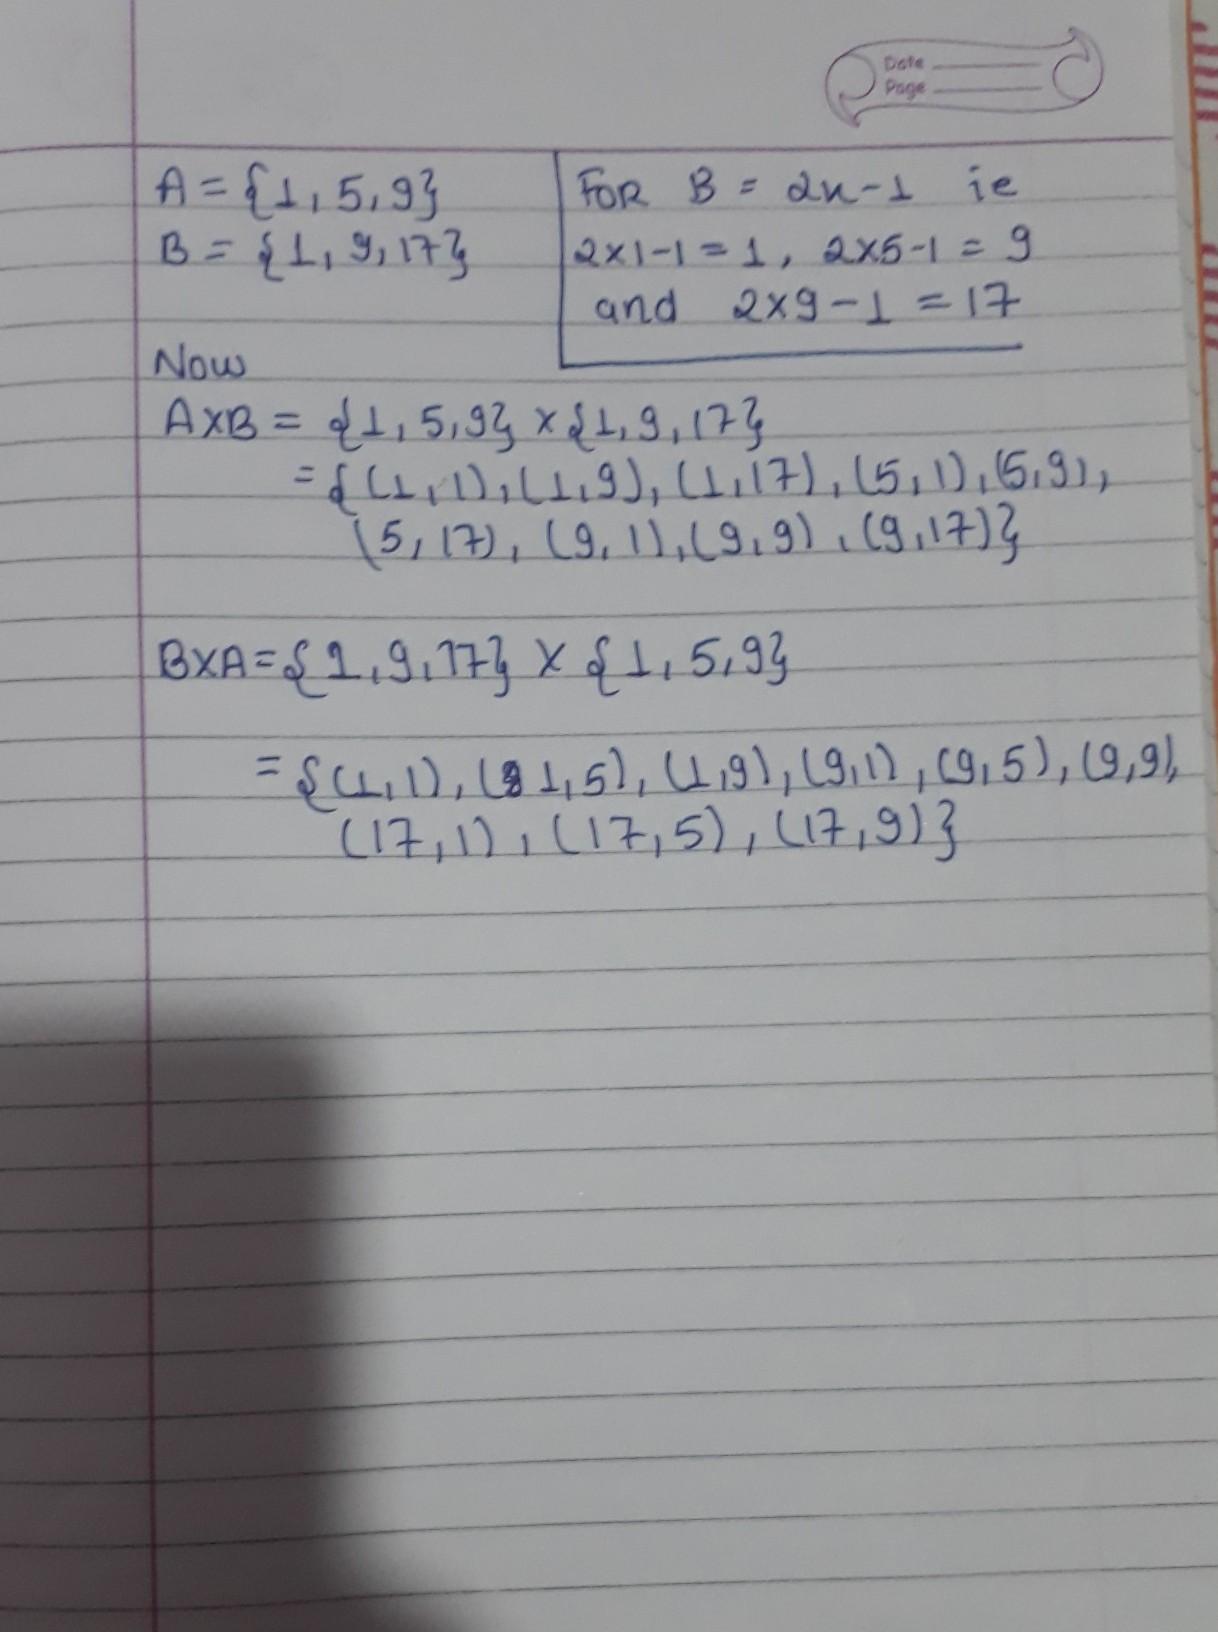 Date
Page
A = {1, 5, 9}
B = {1, 9, 17}
FOR B = 2x-1 ie
2x1-1 = 1, 2x5-1 = 9
and 2x9-1 = 17
Now
AXB = {1, 5, 9} x {1, 9, 17}
= {(1, 1), (1, 9), (1, 17), (5, 1), (5, 9),
(5, 17), (9, 1), (9, 9), (9, 17)}
BXA = {1, 9, 17} X {1, 5, 9}
= {(1, 1), (1, 5), (1, 9), (9, 1), (9, 5), (9, 9),
(17, 1), (17, 5), (17, 9)}